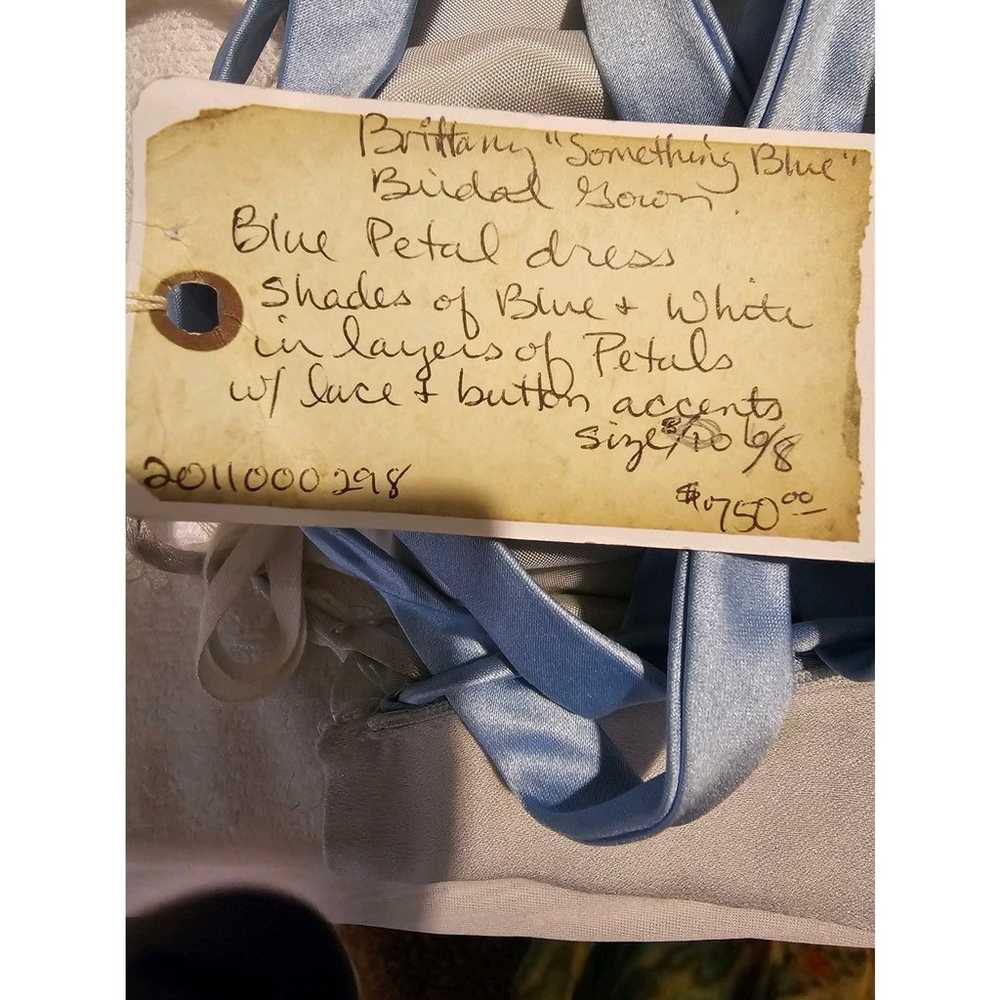 Brittany "Something Blue"
Bridal Gown.
Blue Petal dress
Shades of Blue + White
in layers of Petals
w/ lace + button accents
size 6/8
2011000298
$750.00